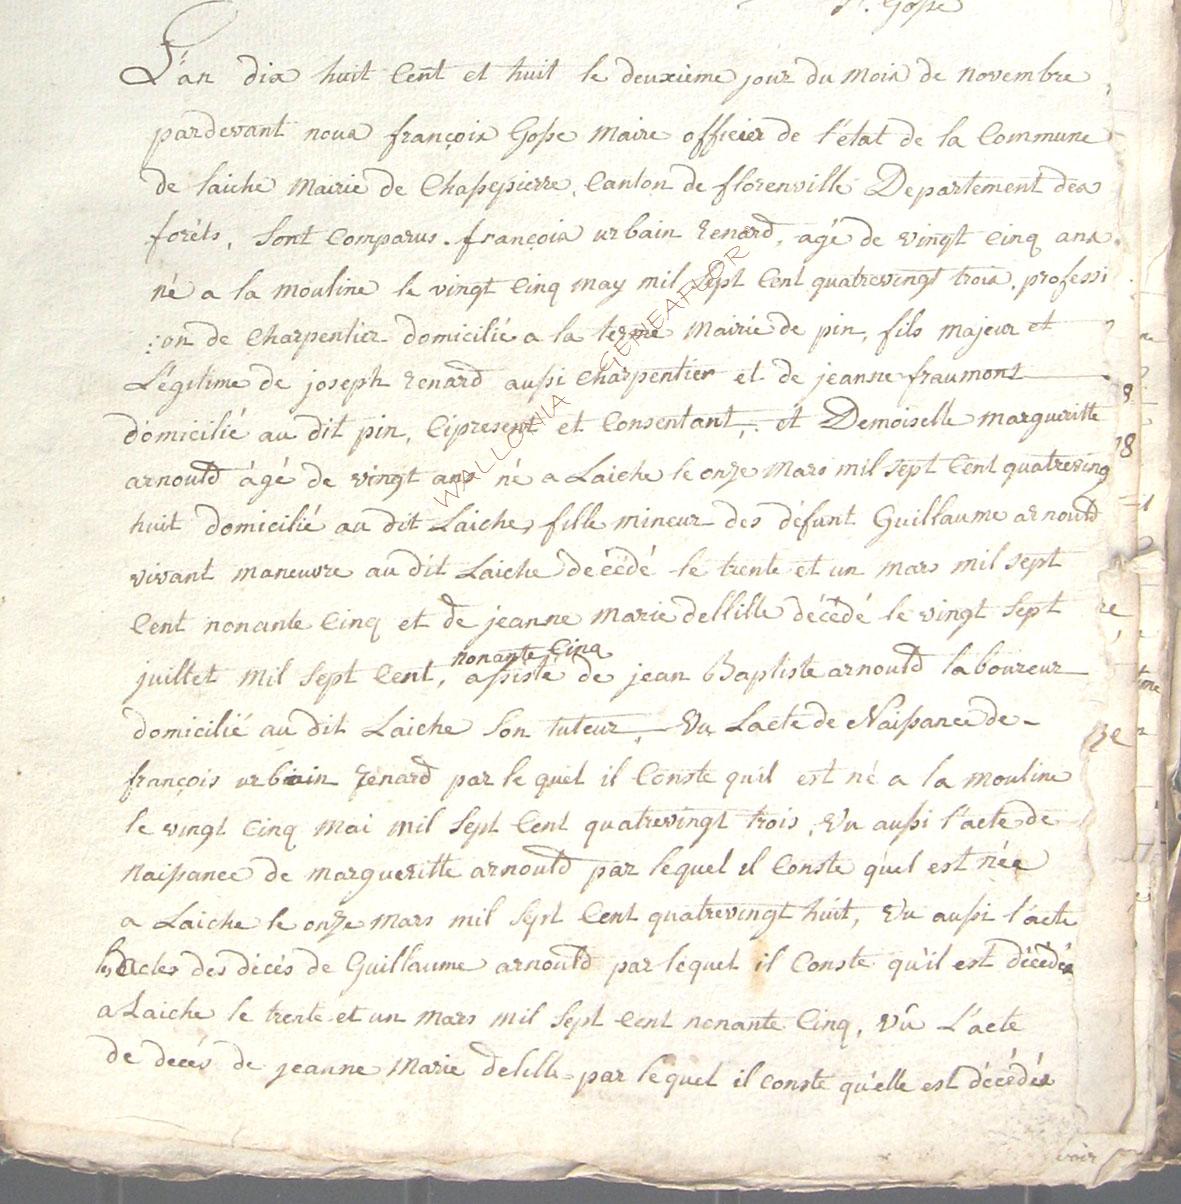 fr. Gosse
L'an dix huit Cent et huit le deuxième jour du mois de novembre
pardevant nous françois Gosse maire officier de l'état de la Commune
de laiche mairie de Chassepierre. Canton de florenville Departement des
forêts, sont comparus. françois urbain renard, agé de vingt cinq ans
né a la mouline le vingt cinq may mil sept cent quatrevingt trois. professi
:on de Charpentier domicilié a la terme mairie de pin, fils majeur et
Légitime de joseph renard aussi charpentier et de jeanne fraumont
domicilié au dit pin, Cipresent et Consentant, et Demoiselle margueritte
arnould âgé de vingt ans né a Laiche le onze mars mil sept cent quatreving
huit domicilié au dit Laiche, fille mineur des défunt Guillaume arnould
vivant maneuvre au dit Laiche décédé le trente et un mars mil sept
Cent nonante Cinq et de jeanne marie dellille décédé le vingt sept
nonante Cinq
juillet mil sept Cent, assisté de jean Baptiste arnould laboureur
domicilié au dit Laiche son tuteur, Vu Lacte de Naissance de
françois urbain renard par le quel il Conste qu'il est né a la mouline
le vingt cinq mai mil sept Cent quatrevingt trois, Vu aussi l'acte de
naissance de margueritte arnould par lequel il Conste quel est née
a Laiche le onze mars mil sept Cent quatrevingt huit, Vu aussi l'acte
les actes des décés de Guillaume arnould par lequel il Conste qu'il est décédé
a Laiche le trente et un mars mil sept Cent nonante Cinq, Vu L'acte
de decés de jeanne marie delille par lequel il conste qu'elle est décédée
WALLONIA GENEAFLOR